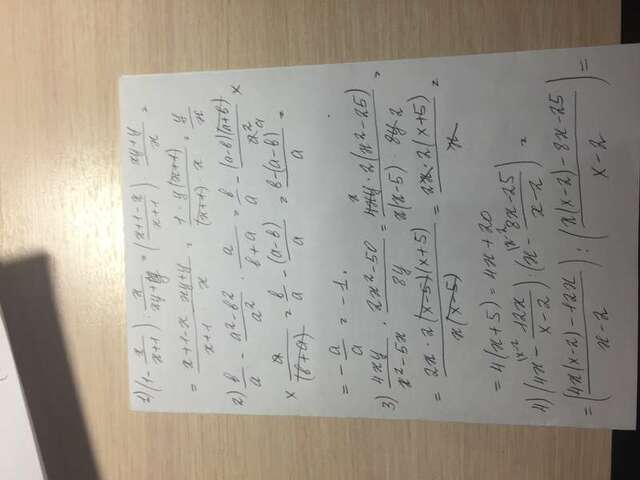 1) (1 - x/(x+1)) : x/(xy+y) = ((x+1-x)/(x+1)) · (xy+y)/x =
= (x+1-x)/(x+1) · (xy+y)/x = (1·y(x+1))/((x+1)·x) = y/x
2) b/a - (a²-b²)/a² · a/(b+a) = b/a - ((a-b)(a+b))/a² ×
× a/(b+a) = b/a - (a-b)/a = (b-(a-b))/a =
= -a/a = -1.
3) 4xy/(x²-5x) · (2x²-50)/8y = (4xy·2(x²-25))/(x(x-5)·8y) =
= (2x·2(x-5)(x+5))/(x(x-5)) = (2x·2(x+5))/x =
= 4(x+5) = 4x+20
4) (4x - 12x/(x-2)) : (x - (8x-25)/(x-2)) =
= ((4x(x-2)-12x)/(x-2)) : ((x(x-2)-8x-25)/(x-2)) =